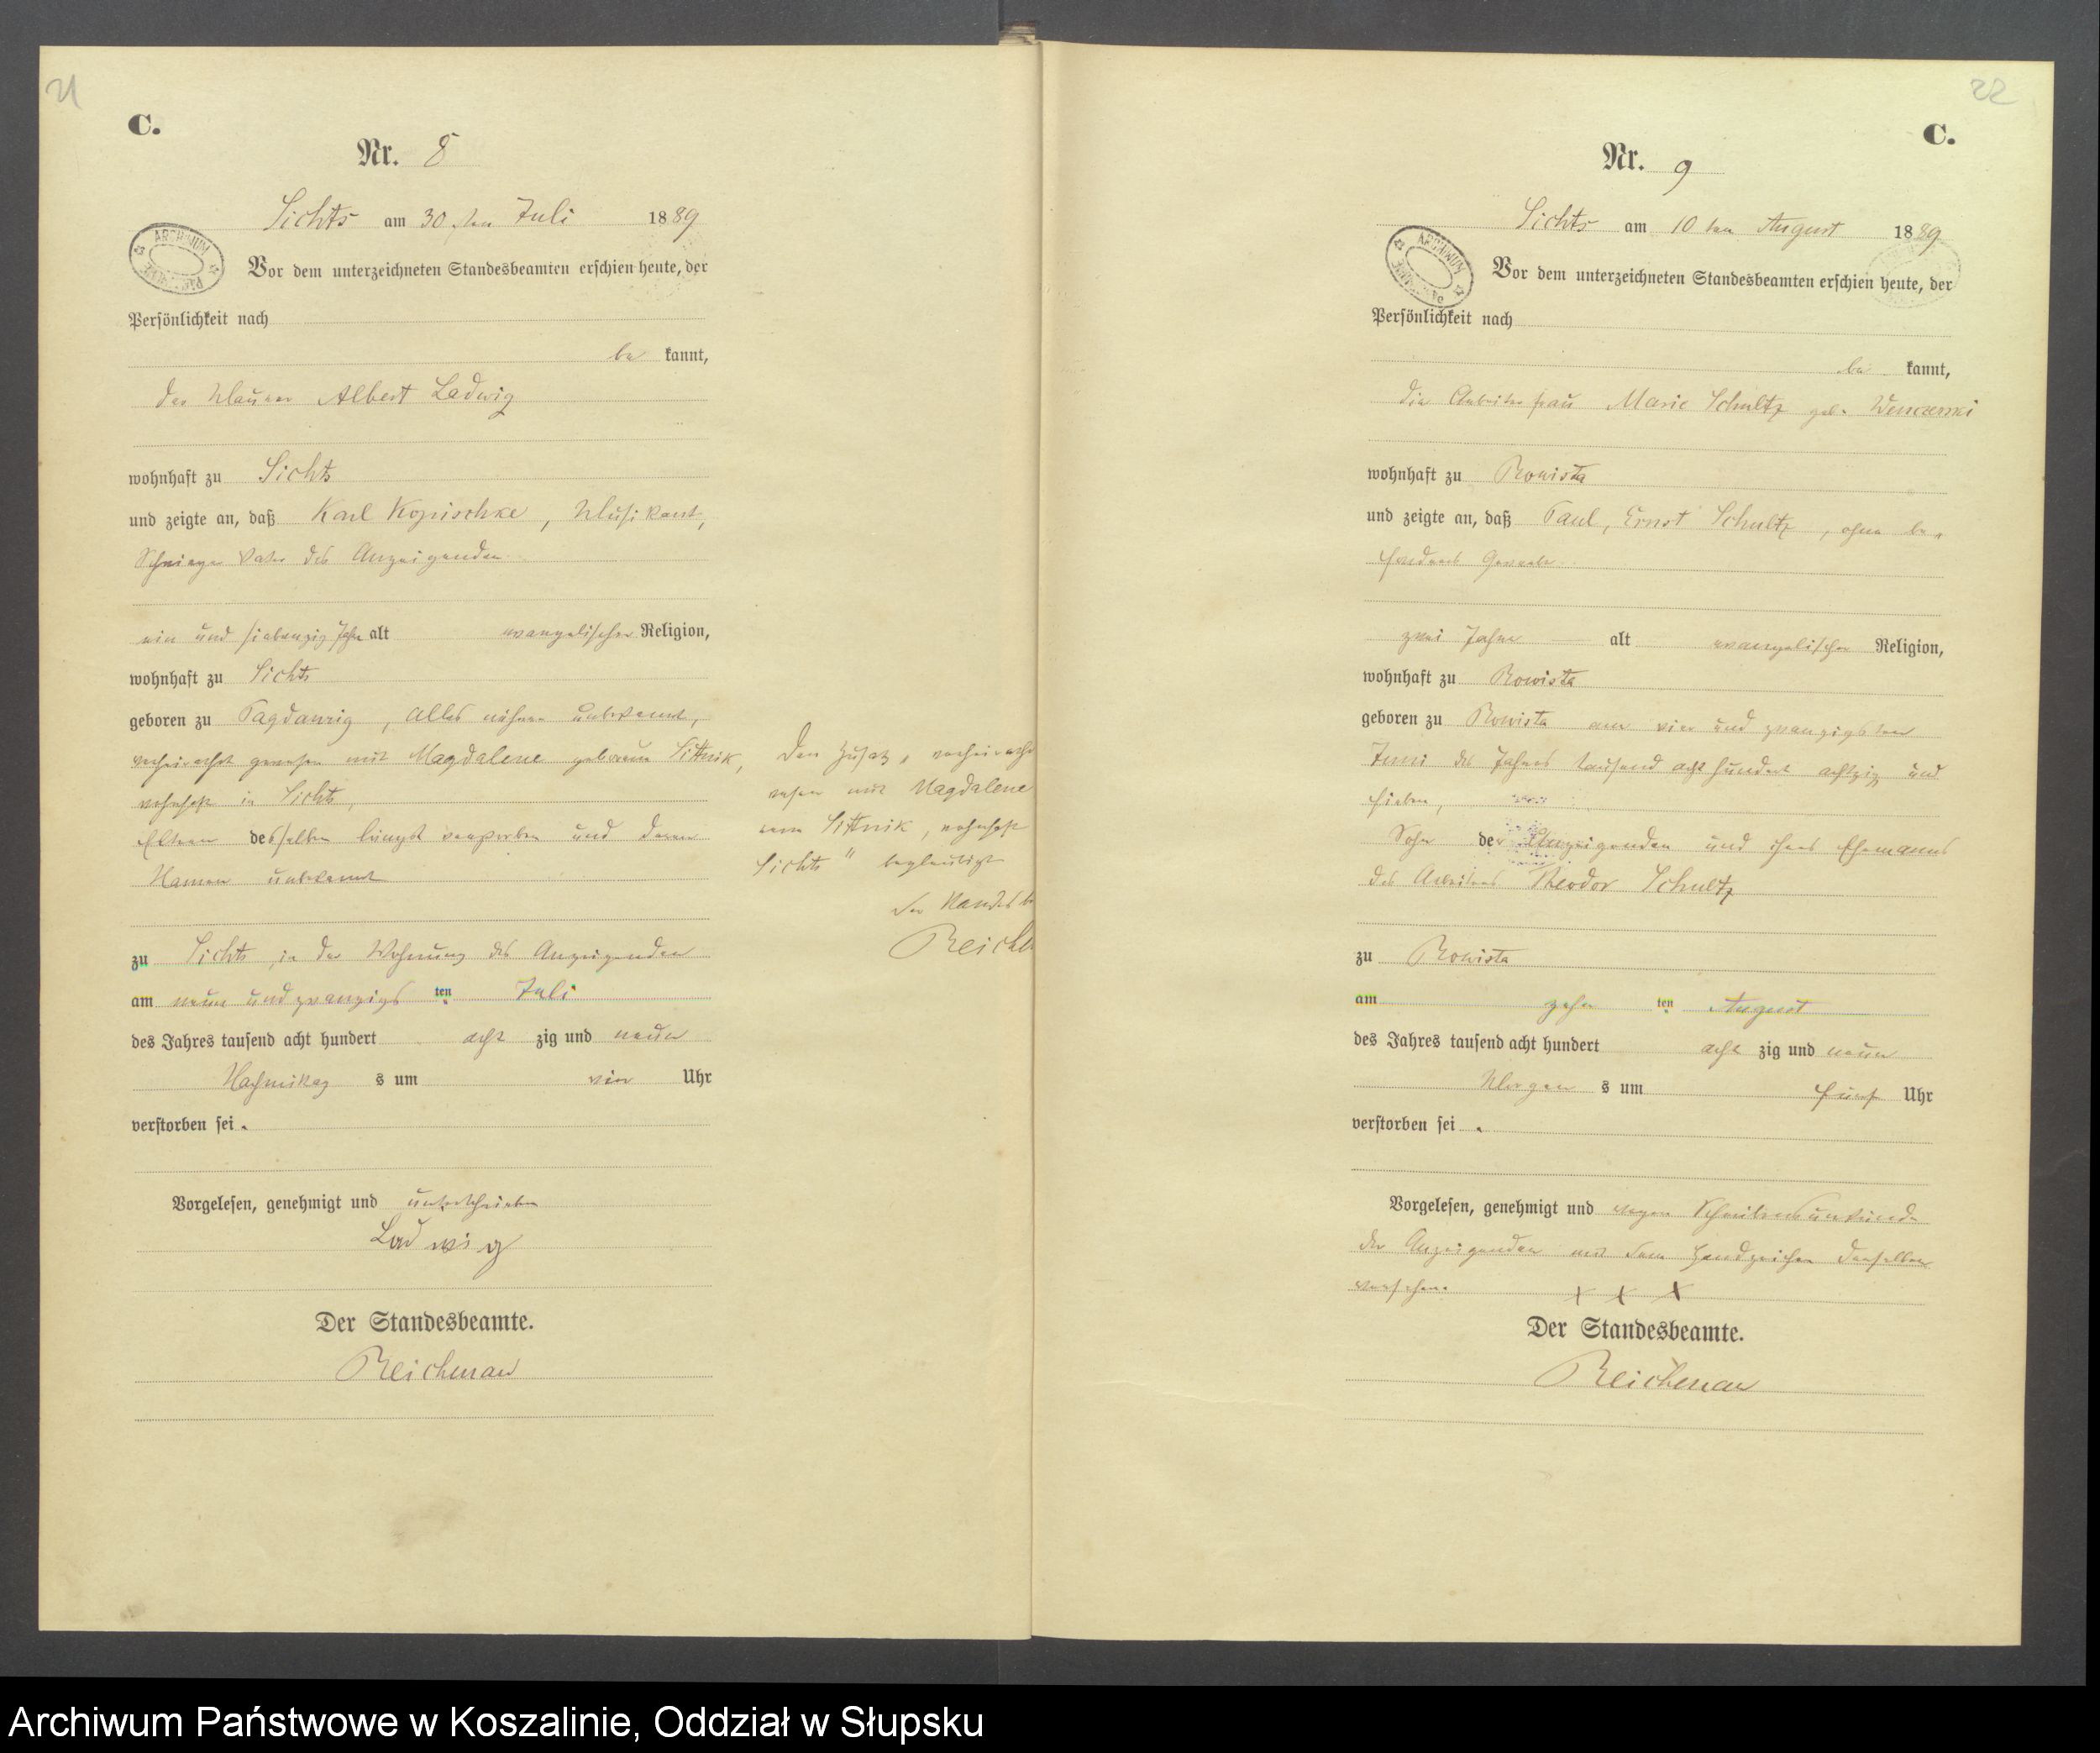 21
C.
Nr. 8
Lichts am 30 ten Juli 1889
ARCHIWUM
Vor dem unterzeichneten Standesbeamten erschien heute, der
Persönlichkeit nach
be kannt,
der Maurer Albert Ladwig
wohnhaft zu Lichts
und zeigte an, daß Karl Kopischke, Musikant,
Schwieger Vater des Anzeigenden
ein und siebenzig Jahr alt evangelischer Religion,
wohnhaft zu Lichts
geboren zu alles nähere unbekannt,
verheirathet gewesen mit Magdalene geborene Sittnik,
wohnhaft in Lichts,
Eltern desselben längst verstorben und deren
Namen unbekannt
zu Lichts, in der Wohnung des Anzeigenden
am neun und zwanzigs ten Juli
des Jahres tausend acht hundert acht zig und neun
Nachmittag s um vier Uhr
verstorben sei.
Vorgelesen, genehmigt und unterschrieben
Ladwig
Der Standesbeamte.
Reichenau
Den Zusatz „verheirath
wesen mit Magdalene
rene Sittnik, wohnhaft
Lichts“ beglaubigt
Der Standesb
Reiche
22
C.
Nr. 9
Lichts am 10 ten August 1889
ARCHIWUM
Vor dem unterzeichneten Standesbeamten erschien heute, der
Persönlichkeit nach
be kannt,
die Arbeiterfrau Marie Schultz geb.
wohnhaft zu Rowista
und zeigte an, daß Paul, Ernst Schultz, ohne be-
sonderes Gewerbe
zwei Jahre alt evangelischer Religion,
wohnhaft zu Rowista
geboren zu Rowista am vier und zwanzigsten
Juni des Jahres tausend acht hundert achtzig und
sieben,
Sohn der Anzeigenden und ihres Ehemanns
des Arbeiters Theodor Schultz
zu Rowista
am zehn ten August
des Jahres tausend acht hundert acht zig und neun
Morgen s um fünf Uhr
verstorben sei.
Vorgelesen, genehmigt und wegen Schreibensunkunde
der Anzeigenden mit dem Handzeichen derselben
versehen. X X X
Der Standesbeamte.
Reichenau
Archiwum Państwowe w Koszalinie, Oddział w Słupsku